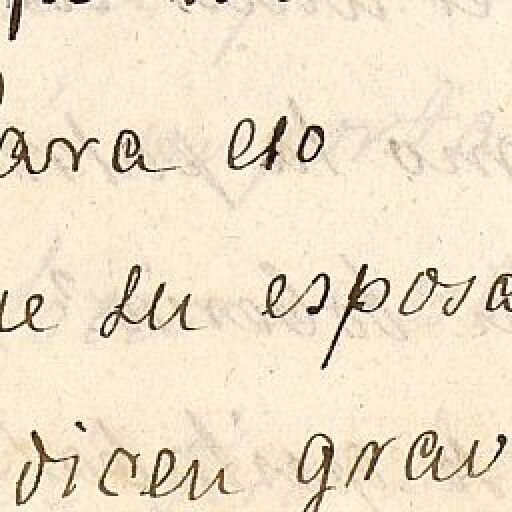 para eso
ue su esposa
dicen grav